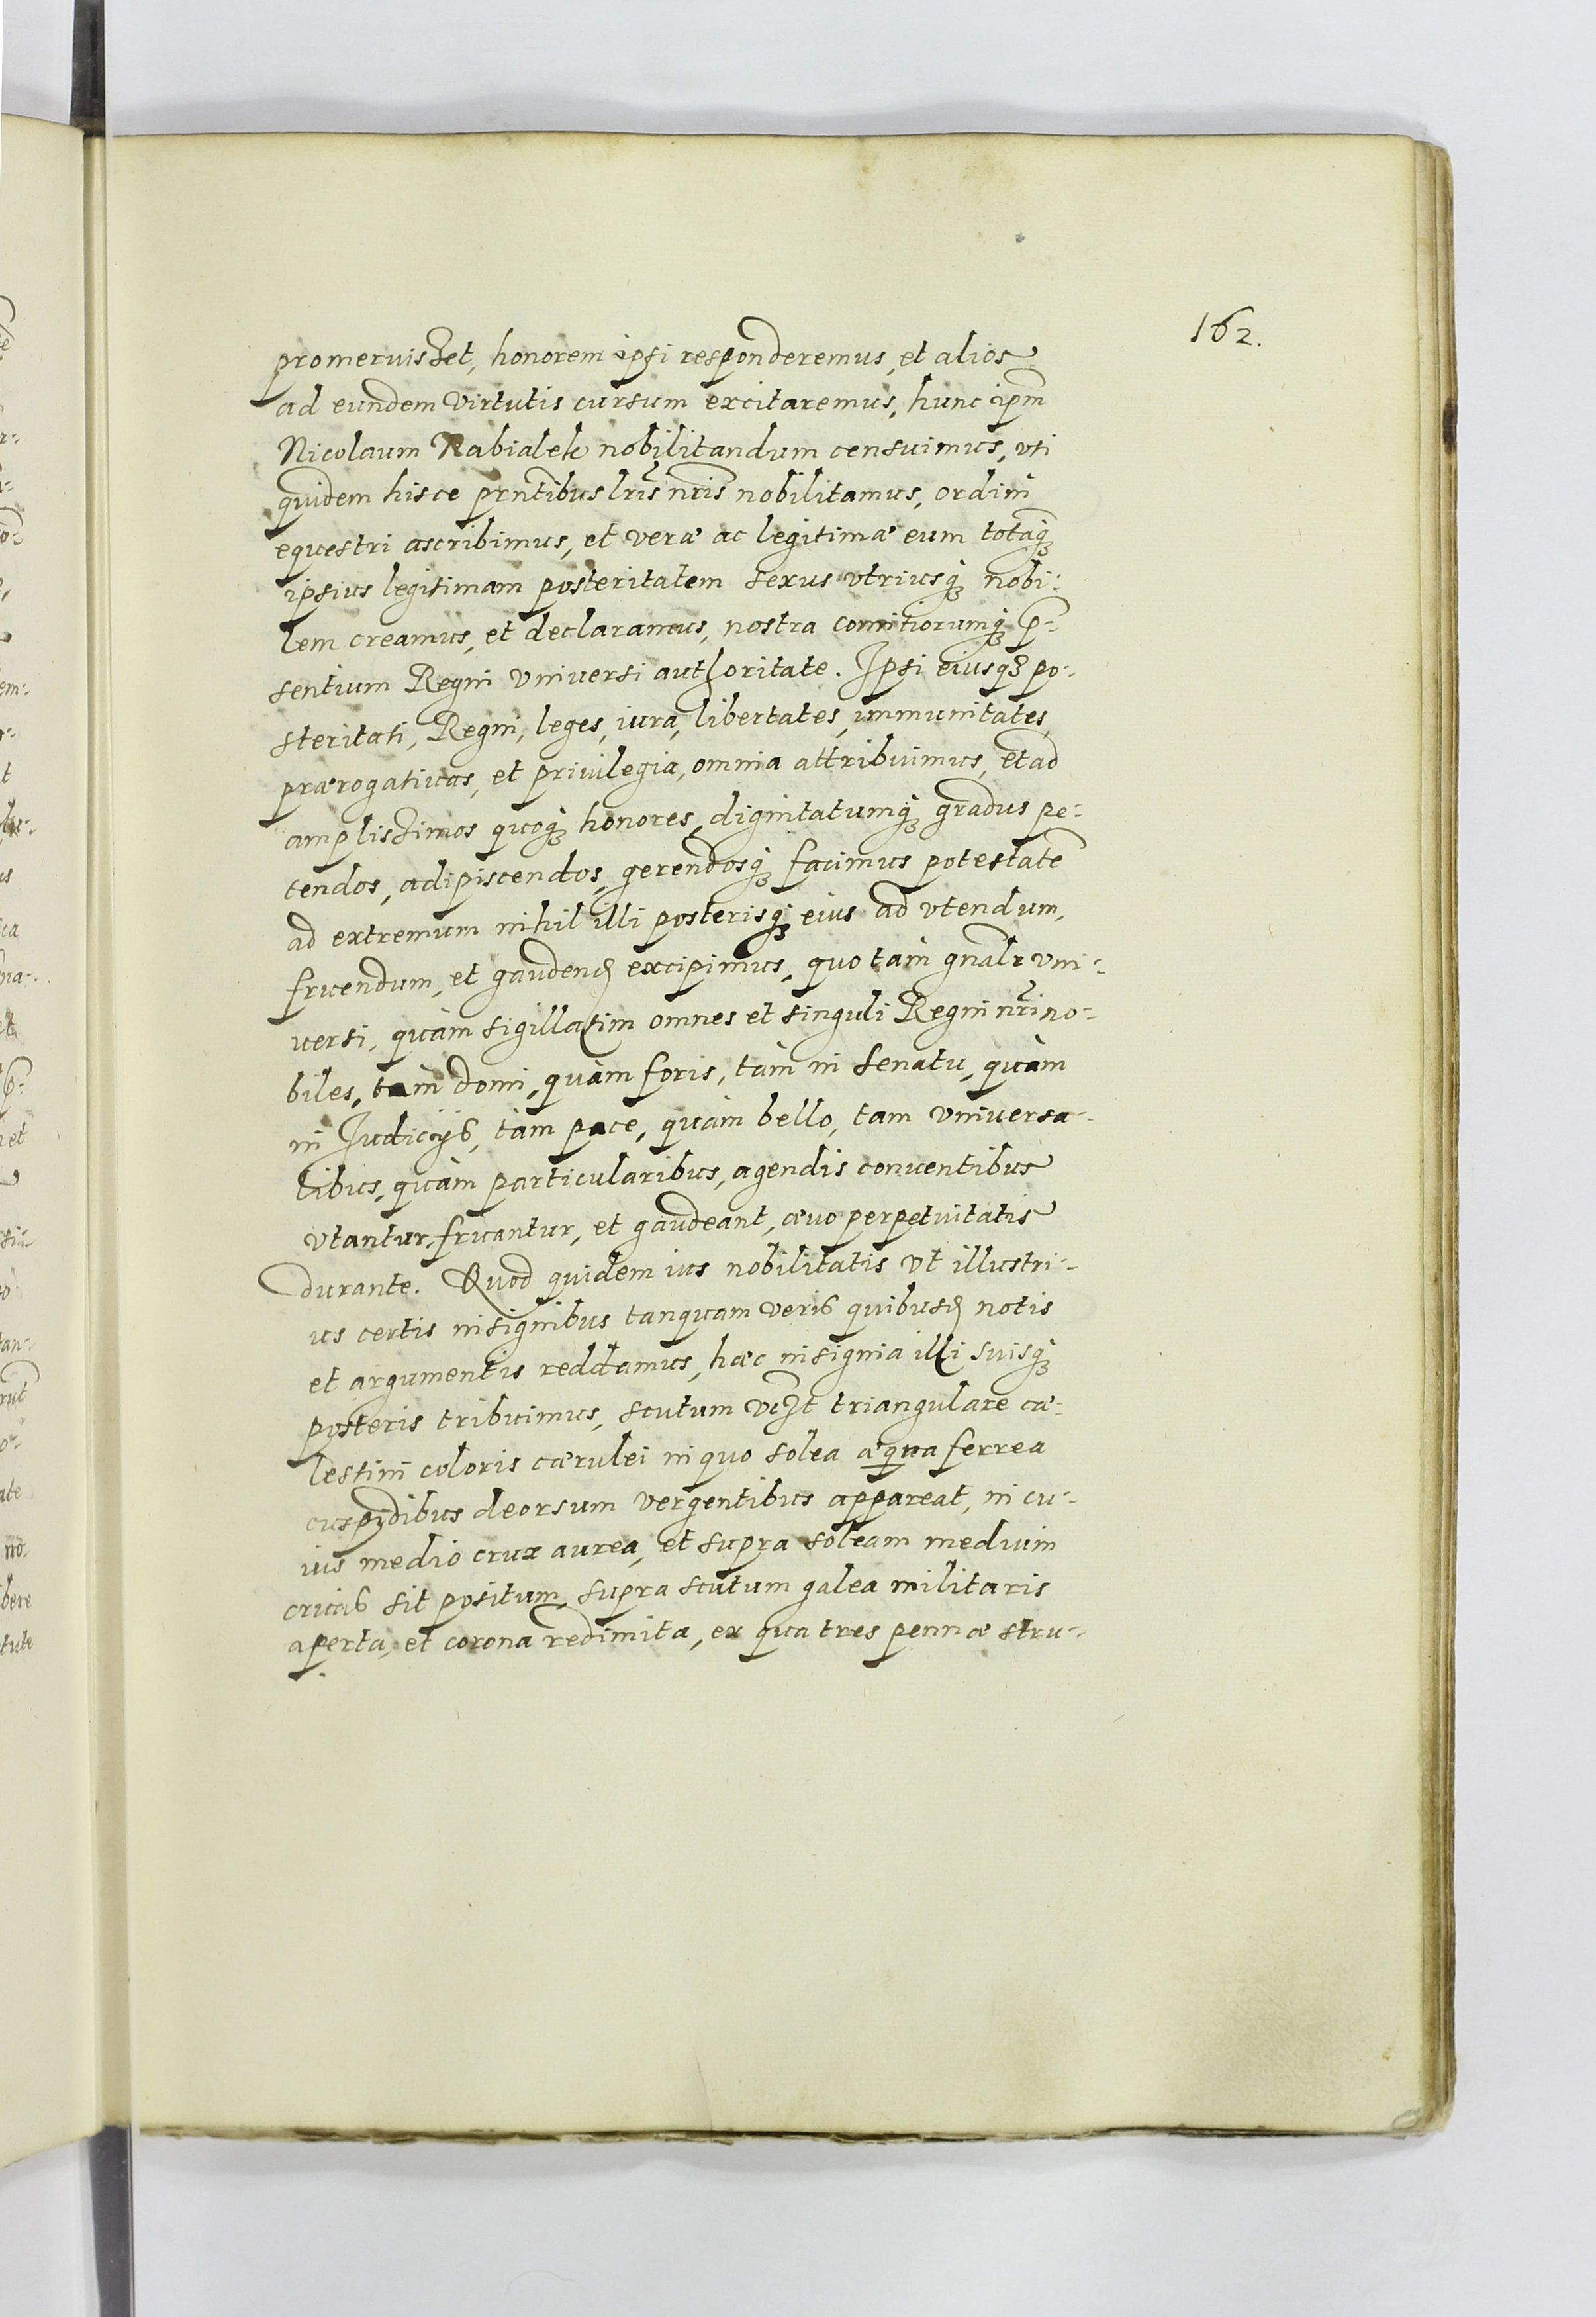 162.
promeruisset, honorem ipsi responderemus, et alios
ad eundem virtutis cursum excitaremus, hunc ipm̃
Nicolaum Nabialek nobilitandum censuimus, vti
quidem hisce prñtibus lr̃is nr̃is nobilitamus, ordini
equestri ascribimus, et veræ ac legitimæ eum totaq́ꝫ
ipsius legitimam posteritatem sexus vtriusq́ꝫ nobi-
lem creamus, et declaramus, nostra comitiorumq́ꝫ p̃-
sentium Regni vniuersi authoritate. Ipsi eiusqꝫ po-
steritati, Regni, leges, iura, libertates, immunitates
prærogatiuas, et priuilegia, omnia attribuimus, et ad
amplissimos quoq́ꝫ honores, dignitatumq́ꝫ gradus pe-
tendos, adipiscendos, gerendosq́ꝫ facimus potestatē
ad extremum nihil illi posterisq́ꝫ eius ad vtendum,
fruendum, et gaudend excipimus, quo tàm gnalr̃ vni-
uersi, quàm sigillatim omnes et singuli Regni nr̃i no-
biles, tàm domi, quàm foris, tàm in senatu, quàm
in Judicijs, tàm pace, quàm bello, tam vniuersa-
libus, quàm particularibus, agendis conuentibus
vtantur, fruantur, et gaudeant, æuo perpetuitatis
durante. Quod quidem ius nobilitatis vt illustri-
us certis insignibus tanquam veris quibusd notis
et argumentis reddamus, hæc insignia illi suisq́ꝫ
posteris tribuimus, scutum vcꝫt triangulare cæ-
lestini coloris cærulei in quo solea æqua ferrea
cuspidibus deorsum vergentibus appareat, in cu-
ius medio crux aurea, et supra soleam medium
crucis sit positum, supra scutum galea militaris
aperta, et corona redimita, ex qua tres pennæ stru-